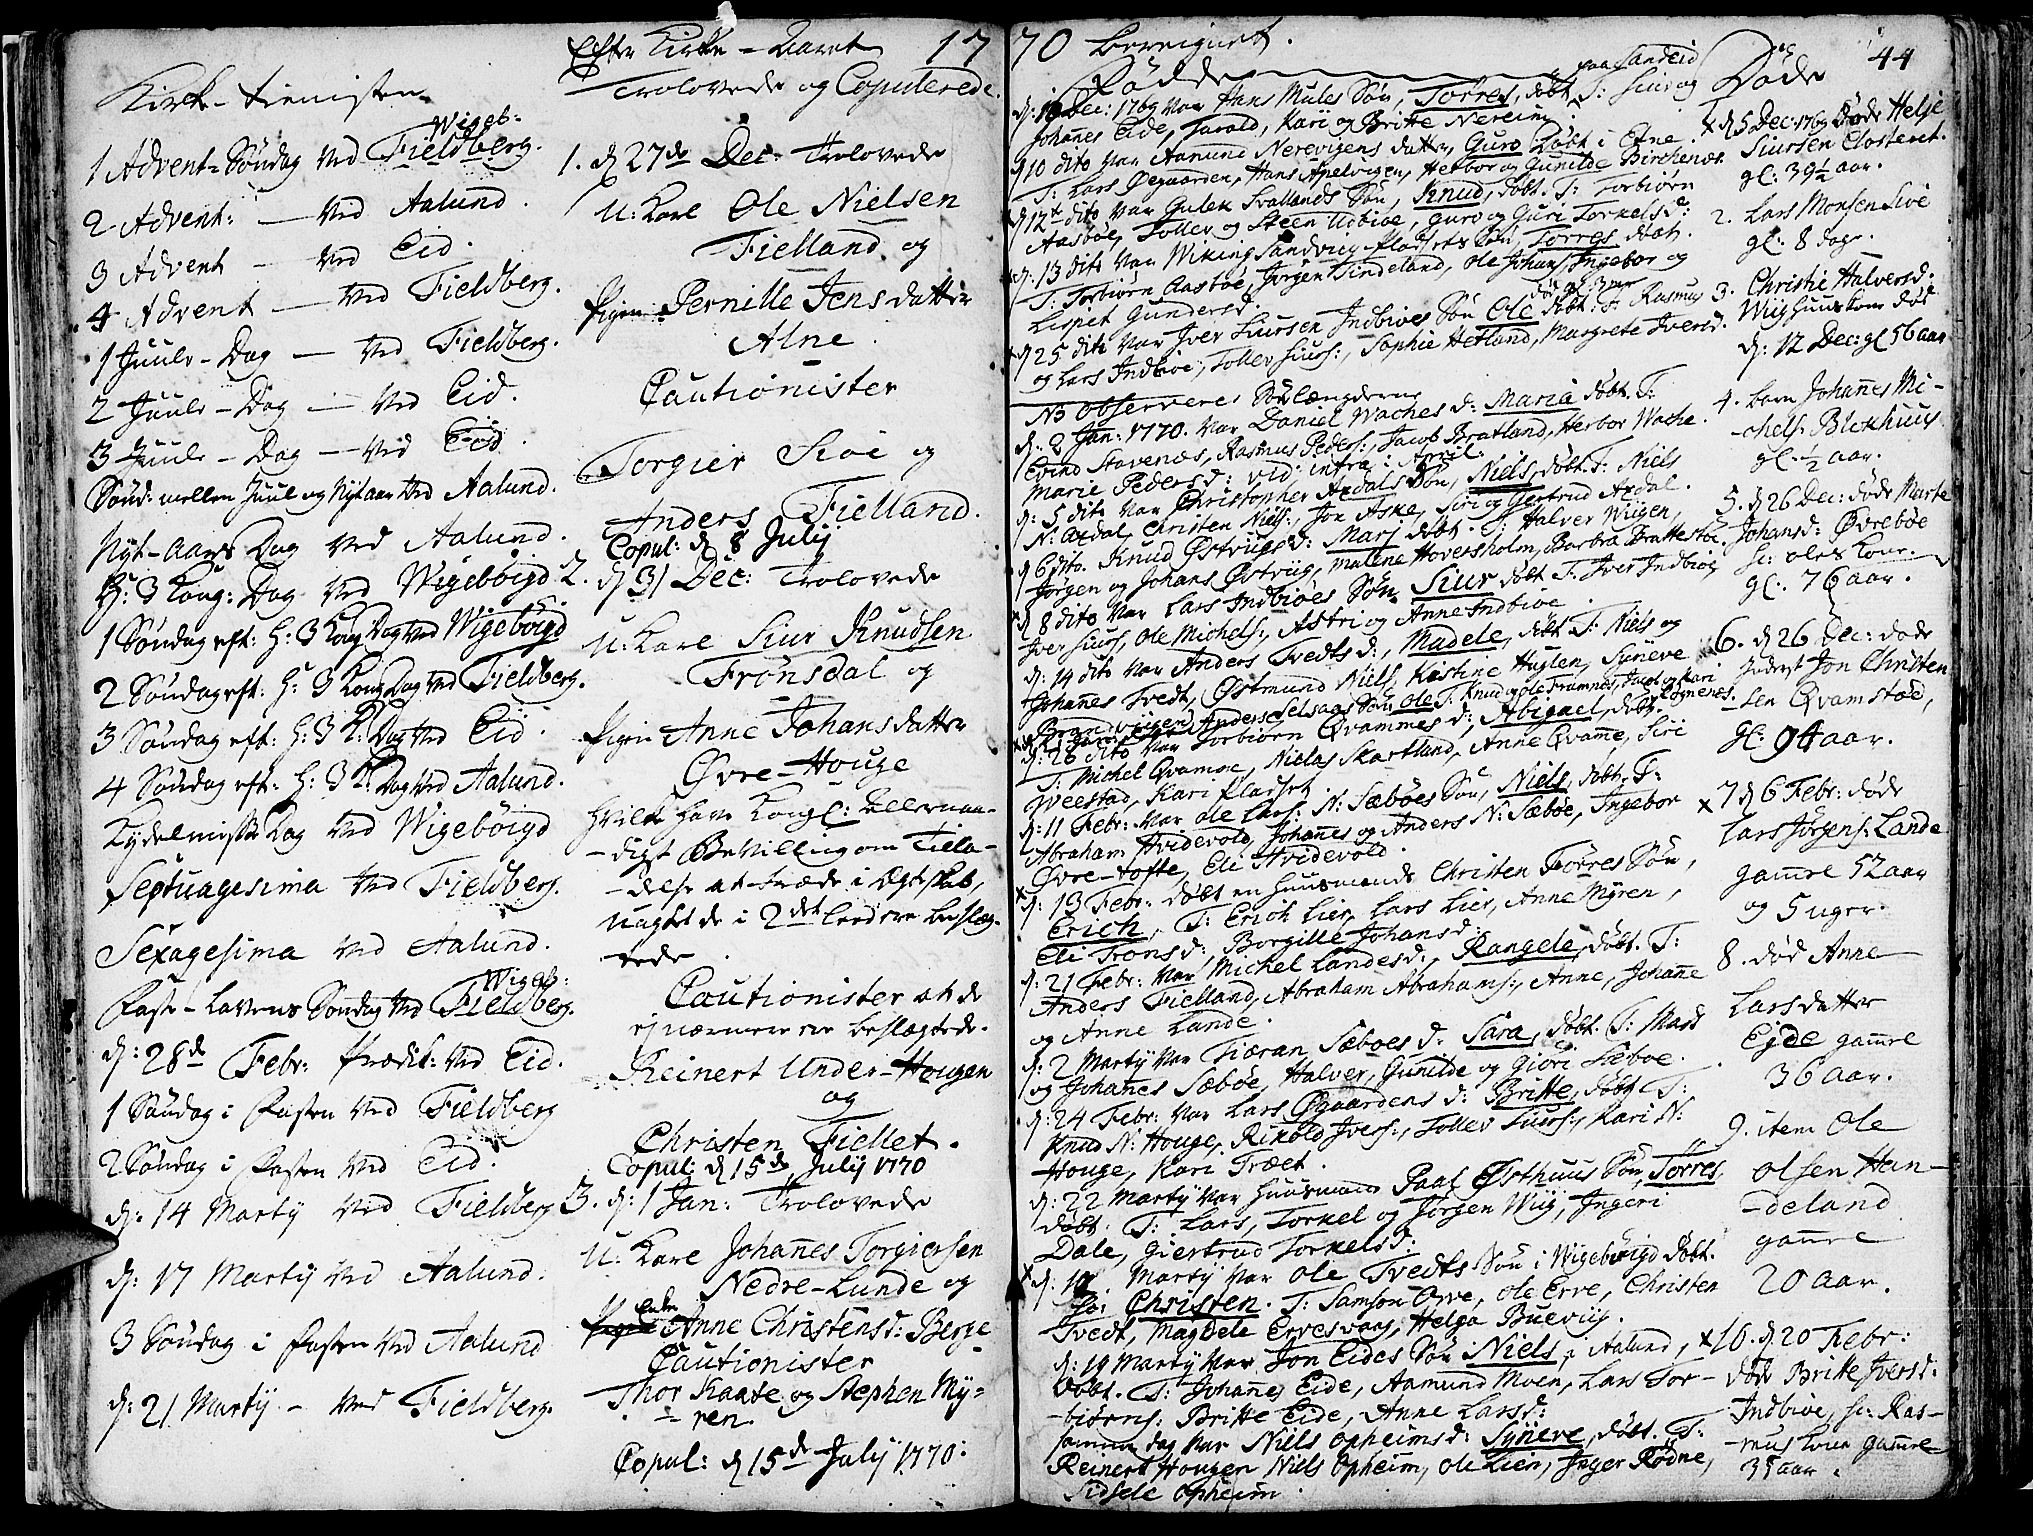 Efter Kirke-Aaret 1770 beregnet.
44
Kirke-tienisten
1 Advent-Søndag ved Fieldberg. Wigeb:
2 Advent: — ved Aalund.
3 Advent — ved Eid.
4 Advent — ved Fieldberg.
1 Juule-Dag — ved Fieldberg.
2 Juule-Dag — ved Eid.
3 Juule-Dag — ved Eid.
Sønd: mellem Juul og Nytaar ved Aalund.
Nyt-aars Dag ved Aalund.
H: 3 Kong: Dag ved Wigebøigd
1 Søndag eft: H: 3 Kong Dag ved Wigebøigd
2 Søndag eft: H: 3 Kong Dag ved Fieldberg.
3 Søndag eft: H: 3 K: Dag ved Eid.
4 Søndag eft: H: 3 K: Dag ved Aalund.
Kydelmisse Dag ved Wigebøigd
Septuagesima ved Fieldberg.
Sexagesima ved Aalund.
Faste-Lavens Søndag ved Fieldberg. Wigeb:
d: 28de Febr: Prædik: ved Eid.
1 Søndag i Fasten ved Fieldberg
2 Søndag i Fasten ved Eid.
d: 14 Martij ved Fieldberg
d: 17 Martij ved Aalund.
3 Søndag i Fasten ved Aalund
d: 21 Martij – ved Fieldberg.
Trolovede og Copulerede.
1. d 27de Dec: Trolovede
U: Karl Ole Nielsen
Fielland og
Pigen Pernille Jensdatter
Alne.
Cautionister
Torgier Sioe og
Anders Fielland.
Copul: d 8 Julij
2. d 31 Dec: Trolovede
U: Karl Siur Knudsen
Frønsdal og
Pigen Anne Johansdatter
Øvre-Houge
hvilke have Kongl: Allernaa-
-digst Bevilling om Tilla-
-delse at træde i Egteskab,
uagtet de i 2det leed ere beslæg-
tede.
Cautionister at de
ej nærmere ere beslægtede.
Reinert Under-Hougen
og
Christen Fiellet.
Copul: d 15de Julij 1770
3. d: 1 Jan: Trolovede
U: Karl Johanes Torgiersen
Nedre-Lunde og
Enke Anne Christensd: Berge
Cautionister
Thor Kaate og Stephen My-
-ren.
Copul: d 15de Julij 1770.
Fødde
d: 10 Dec: 1769 var Hans Mules Søn, Torres, døbt T: Siur og paa Sandeid
Johanes Eide, Tarald, Kari og Britte Nereim.
d 10 dito var Aamund Nerevigens datter, Guro døbt i Etne
T: Lars Øegaarden, Hans Apelvigen, Herbor og Gunilde Birchenæs.
d 12te dito var Gulek Svallands Søn, Knud, døbt. T: Torbiørn
Aasbøe, Tollev og Steen Udbioe, Guro og Guri Torkelsd:
d: 13 dito var Wiking Sandvig-Pladsets Søn, Torres døbt.
T: Torbiørn Aasbøe, Jørgen Tindeland, Ole Johans, Ingebor og
Lispet Gundersd.
d 25 dito var Iver Siursen Indbioes Søn Ole døbt: T: Rasmus
og Lars Indbioe, Tollev Siurs:, Sophie Hetland, Margrete Iversd.
NB observere
d: 2 Jan: 1770. var Daniel Waches d: Maria døbt. T:
Evind Stavenæs, Rasmus Peders:, Jacob Bratland, Herbor Wache.
Marie Pedersd: vid: infra i April.
d: 5 dito var Christopher Axdals Søn, Niels, døbt. T: Niels
N: Axdal, Christen Niels:, Jon Aske, Siri og Giertrud Axdal.
d 6 dito. Knud Østviigs d: Mari døbt. T: Halver Wiigen,
Jørgen og Johans Østviig, Malene Hoversholm, Barbra Brattestøe.
d 8 dito var Lars Indbioes Søn Siur døbt T: Iver Indbioe
Iver Siurs, Ole Michels:, Astri og Anne Indbioe.
d: 14 dito var Anders Tvedts d:, Madele, døbt T: Niels og
Johanes Tvedt, Østmund Niels, Kistine Huglen, Synneve
Ole T: Knud og Ole Framnes,
d: 28 dito var Torbiørn Qvammes d: Abigael, døbt.
T: Michel Qvamme, Niels Skartland, Anne Qvame, Siri
Weestad, Kari Pladset.
d: 11 Febr: var Ole Lars: N: Sæbøes Søn, Niels, døbt. T:
Abraham Hvidevold, Johanes og Anders N: Sæbøe, Ingebor
Øvre-tofte, Eli Hvidevold.
d: 13 Febr: døbt en Huusmands Christen Torres Søn,
Erich, T: Erich Lier, Lars Lier, Anne Myren,
Eli Tronsd: Borgille Johansd:
d: 21 Febr: var Michel Landes d:, Rangele, døbt. T:
Anders Fielland, Abraham Abrahams:, Anne, Johane
og Anne Lande.
d: 2 Martij var Tiæran Sæbøes d: Sara, døbt. T: Mads
og Johanes Sæbøe, Halver, Gunilde og Giøri Sæbøe.
d: 24 Febr: var Lars Øgaardens d: Britte, døbt T:
Knud N: Houge, Rikold Ivers:, Tollev Siurs:, Kari N:
Houge, Kari Træet.
d: 22 Martij var Huusmand Paal Østhuus Søn, Torres,
døbt. T: Lars, Torkel og Jørgen Wiig, Ingeri
Dale, Giertrud Torkelsd:
d: 14 Martij var Ole Tvedts Søn i Wigebøigd døbt.
Christen. T: Samson Ovre, Ole Erve, Christen
Tvedt, Magdele Ervesvaag, Helga Buevig.
d: 14 Martij var Jon Eides Søn Niels i Aalund,
døbt. T: Johanes Eide, Aamund Moen, Lars Tor-
-biørns: Britte Eide, Anne Larsd:
samme dag var Niels Opheims d: Synneve, døbt. T:
Reinert Hougen Niels Opheim, Ole Lien, Inger Rødne,
Sidsele Opheim.
Døde
1 d 5 Dec: 1769 døde Helje
Siursen Closteret.
gl: 39½ aar.
2. Lars Monsen Sioe
gl: 8 dage.
3. Christie Halversd:
Wiig huuskone død
d: 12 Dec: gl 56 aar
4. Barn Johanes Mi-
-chels: Birkhuus
gl. ½ aar.
5. d 26 Dec: døde Marte
Johansd: Øvrebøe
sc: Oles Kone.
gl: 76 aar.
6. d 26 Dec: døde
Inderst Jon Christen
-sen Qvamstøe,
gl: 94 aar.
7 d 6 Febr: døde
Lars Jørgens: Lande
gamre 52 aar
og 5 uger.
8. død Anne
Larsdatter
Eide gamre
36 aar.
9. item Ole
Olsen Han-
-deland
gamre
20 aar.
10. d. 20 Febr:
døde Britte Iversd:
Indbioe, sc: Ras-
-mus Kone gamre
35 aar.